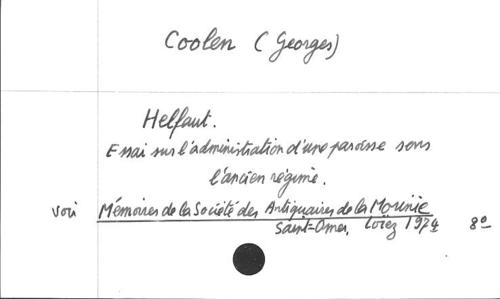 Coolen (Georges)
Helfaut.
Essai sur l'administration d'une paroisse sous
l'ancien régime.
voir Mémoires de la Société des Antiquaires de la Morinie
Saint-Omer, Loïez 1974 8º